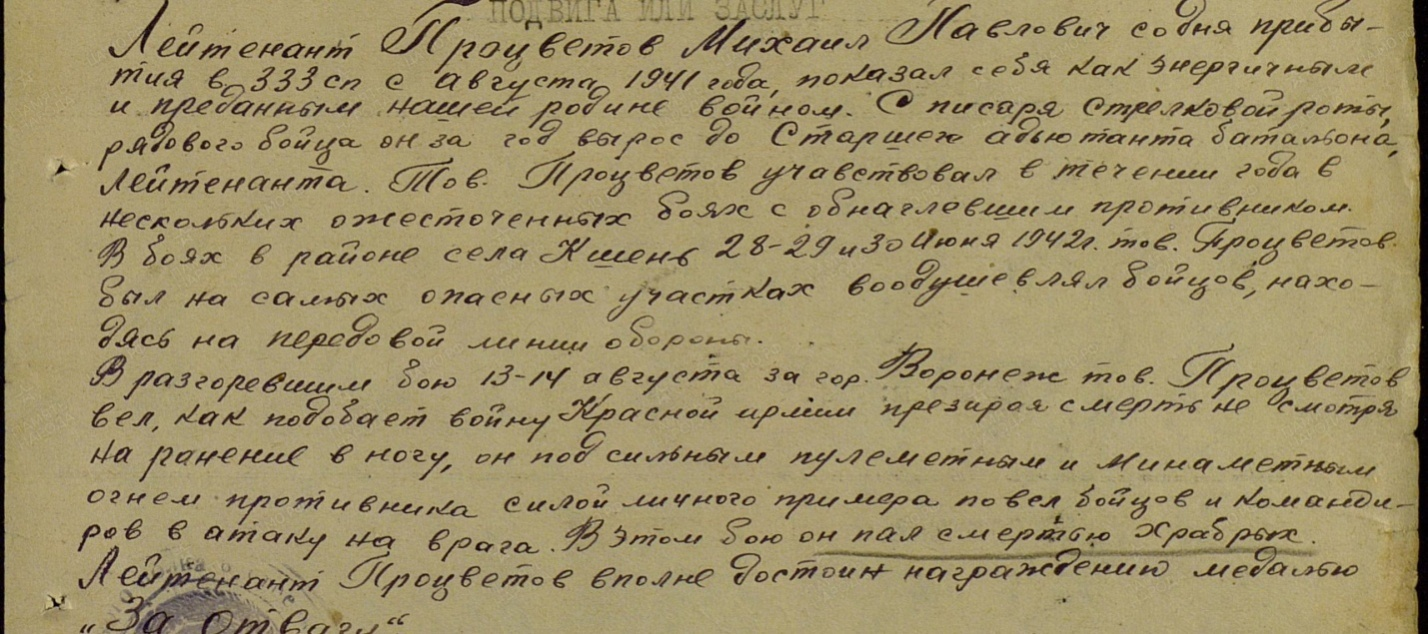 ПОДВИГА ИЛИ ЗАСЛУГ
Лейтенант Процветов Михаил Павлович со дня прибы-
тия в 333 сп с августа 1941 года, показал себя как энергичным
и преданным нашей родине войном. С писаря стрелковой роты,
рядового бойца он за год вырос до Старшего адьютанта батальона,
лейтенанта. Тов. Процветов учавствовал в течении года в
нескольких ожесточенных боях с обнаглевшим противником.
В боях в районе села Кшень 28-29 и 30 Июня 1942г. тов. Процветов
был на самых опасных участках воодушевлял бойцов, нахо-
дясь на передовой линии обороны.
В разгоревшим бою 13-14 августа за гор. Воронеж тов. Процветов
вел, как подобает войну Красной армии презирая смерть не смотря
на ранение в ногу, он под сильным пулеметным и минаметным
огнем противника силой личного примера повел бойцов и команди-
ров в атаку на врага. В этом бою он пал смертью храбрых.
Лейтенант Процветов вполне достоин награждению медалью
„За отвагу“